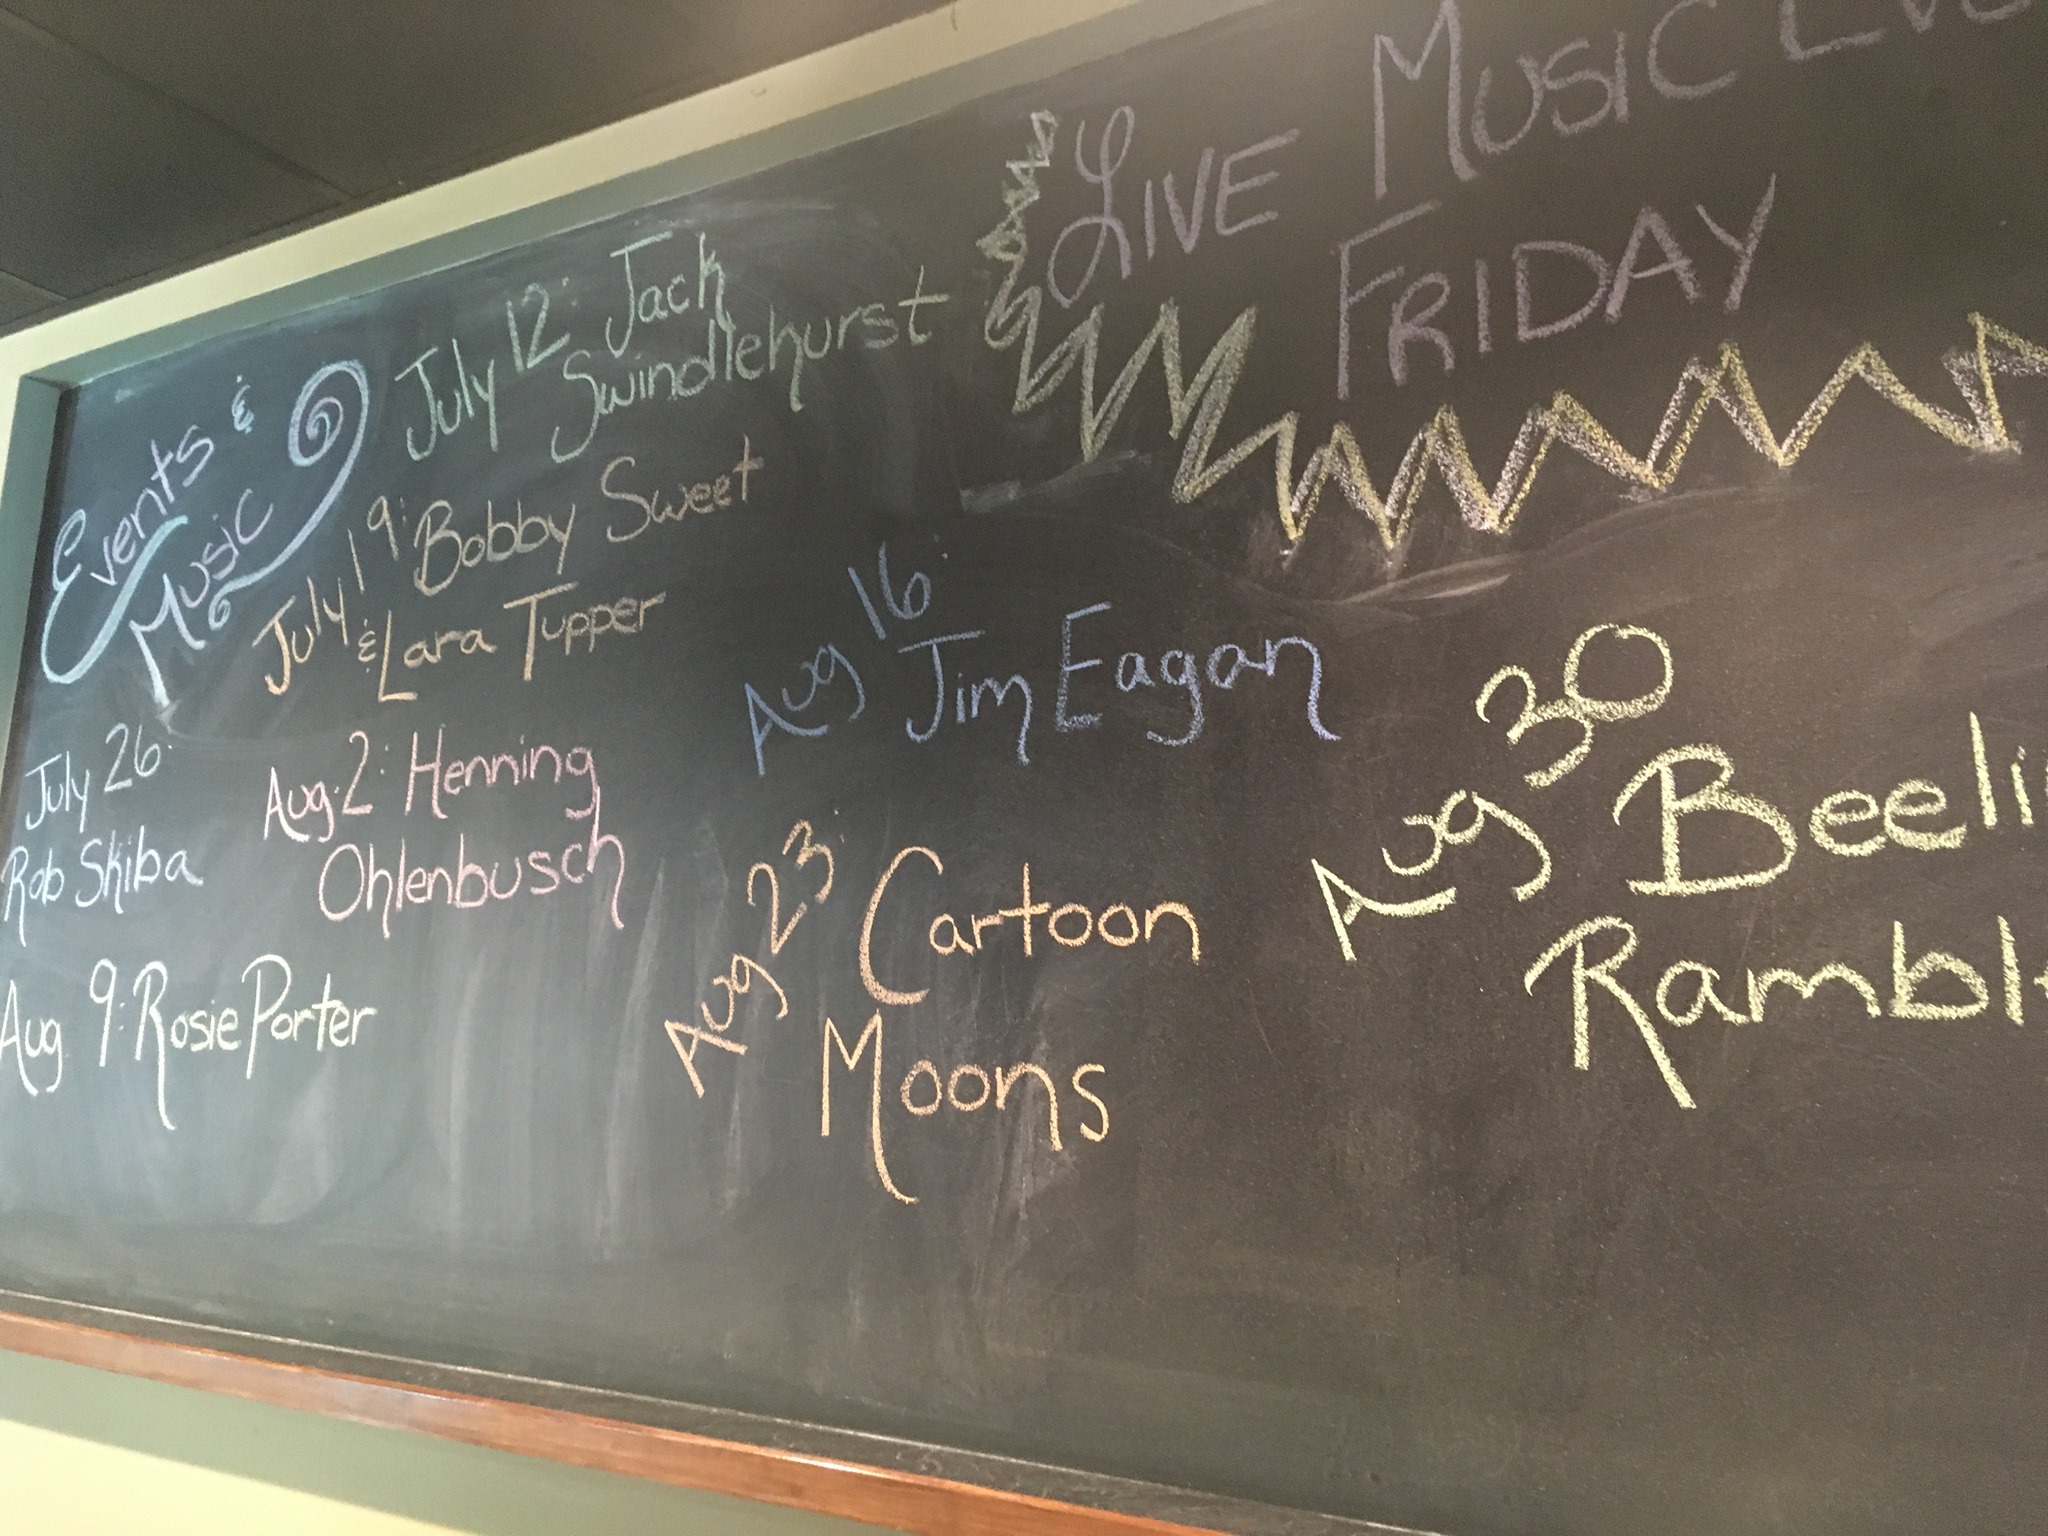 Events &
Music
July 12: Jack
Swindlehurst
July 19: Bobby Sweet
& Lara Tupper
July 26:
Rob Skiba
Aug. 2: Henning
Ohlenbusch
Aug 9: Rosie Porter
LIVE MUSIC
FRIDAY
Aug 16:
Jim Eagan
Aug 23:
Cartoon
Moons
Aug 30